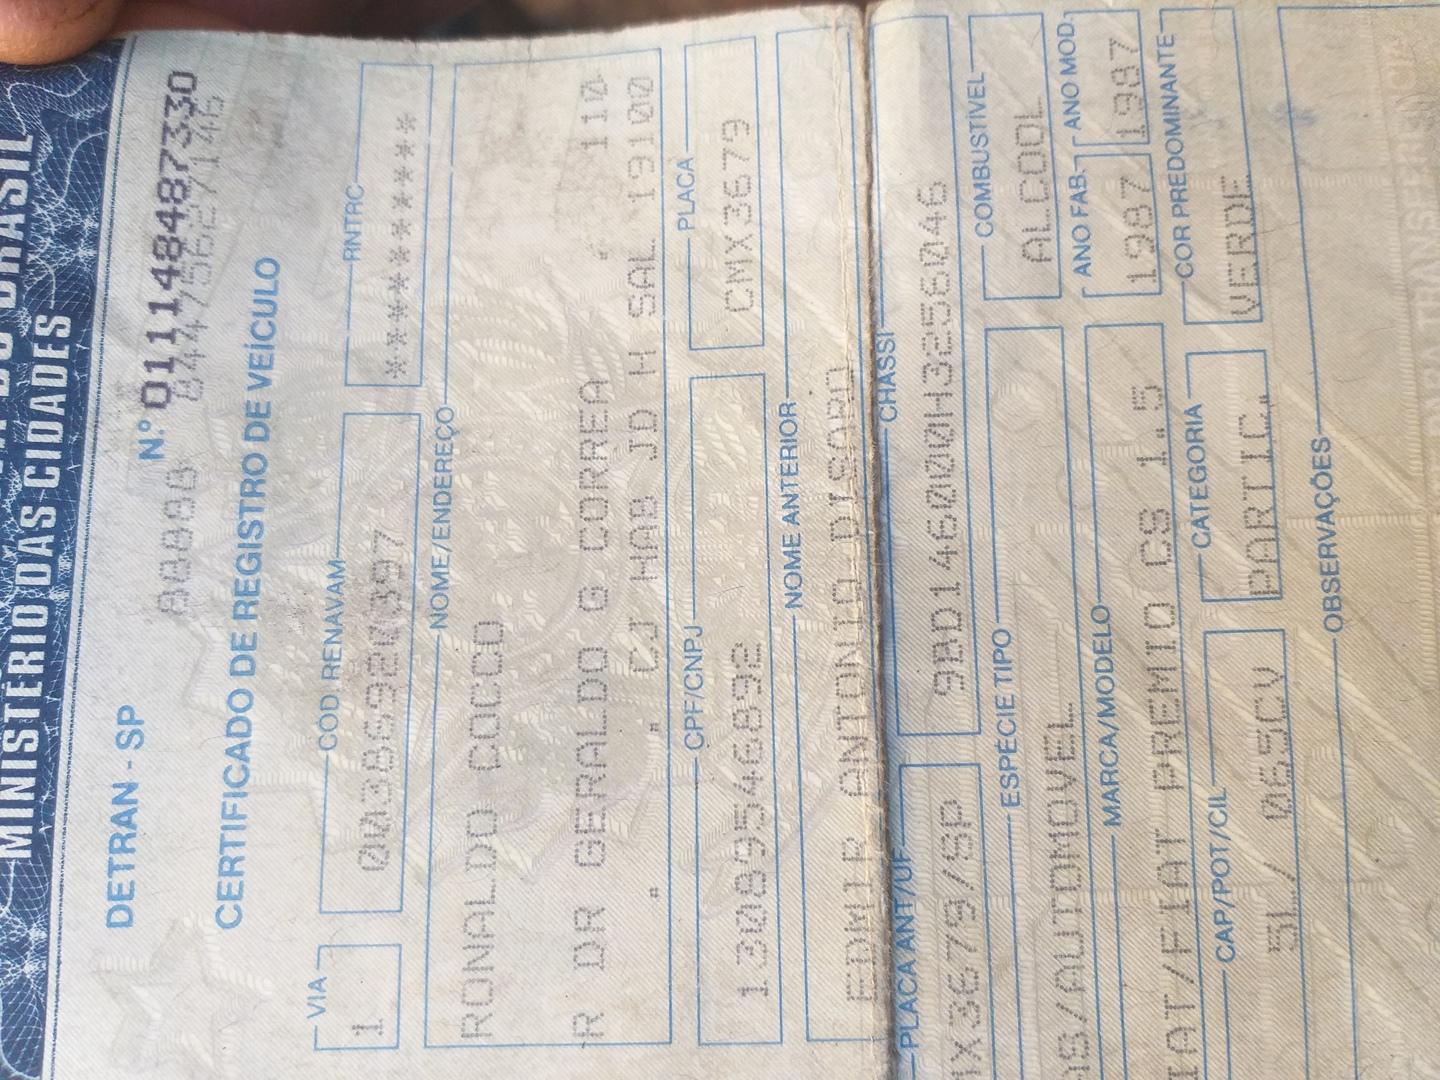 MINISTÉRIO DAS CIDADES
DETRAN - SP
N.º 011148487330
CERTIFICADO DE REGISTRO DE VEÍCULO
VIA
CÓD. RENAVAM
RNTRC
1
********
NOME/ENDEREÇO
RONALDO COCCO
R DR GERALDO G CORREA 110
CJ HAB JD H SAL 19100
CPF/CNPJ
PLACA
13089546892
CMX3679
NOME ANTERIOR
EDMIR ANTONIO DISARO
PLACA ANT/UF
CHASSI
MX3679/SP
9BD146000H3256046
ESPÉCIE TIPO
COMBUSTÍVEL
AS/AUTOMOVEL
ALCOOL
MARCA/MODELO
ANO FAB.
ANO MOD.
IAT/FIAT PREMIO CS 1.5
1987
1987
CAP/POT/CIL
CATEGORIA
COR PREDOMINANTE
5L/ 065CV
PARTIC.
VERDE
OBSERVAÇÕES